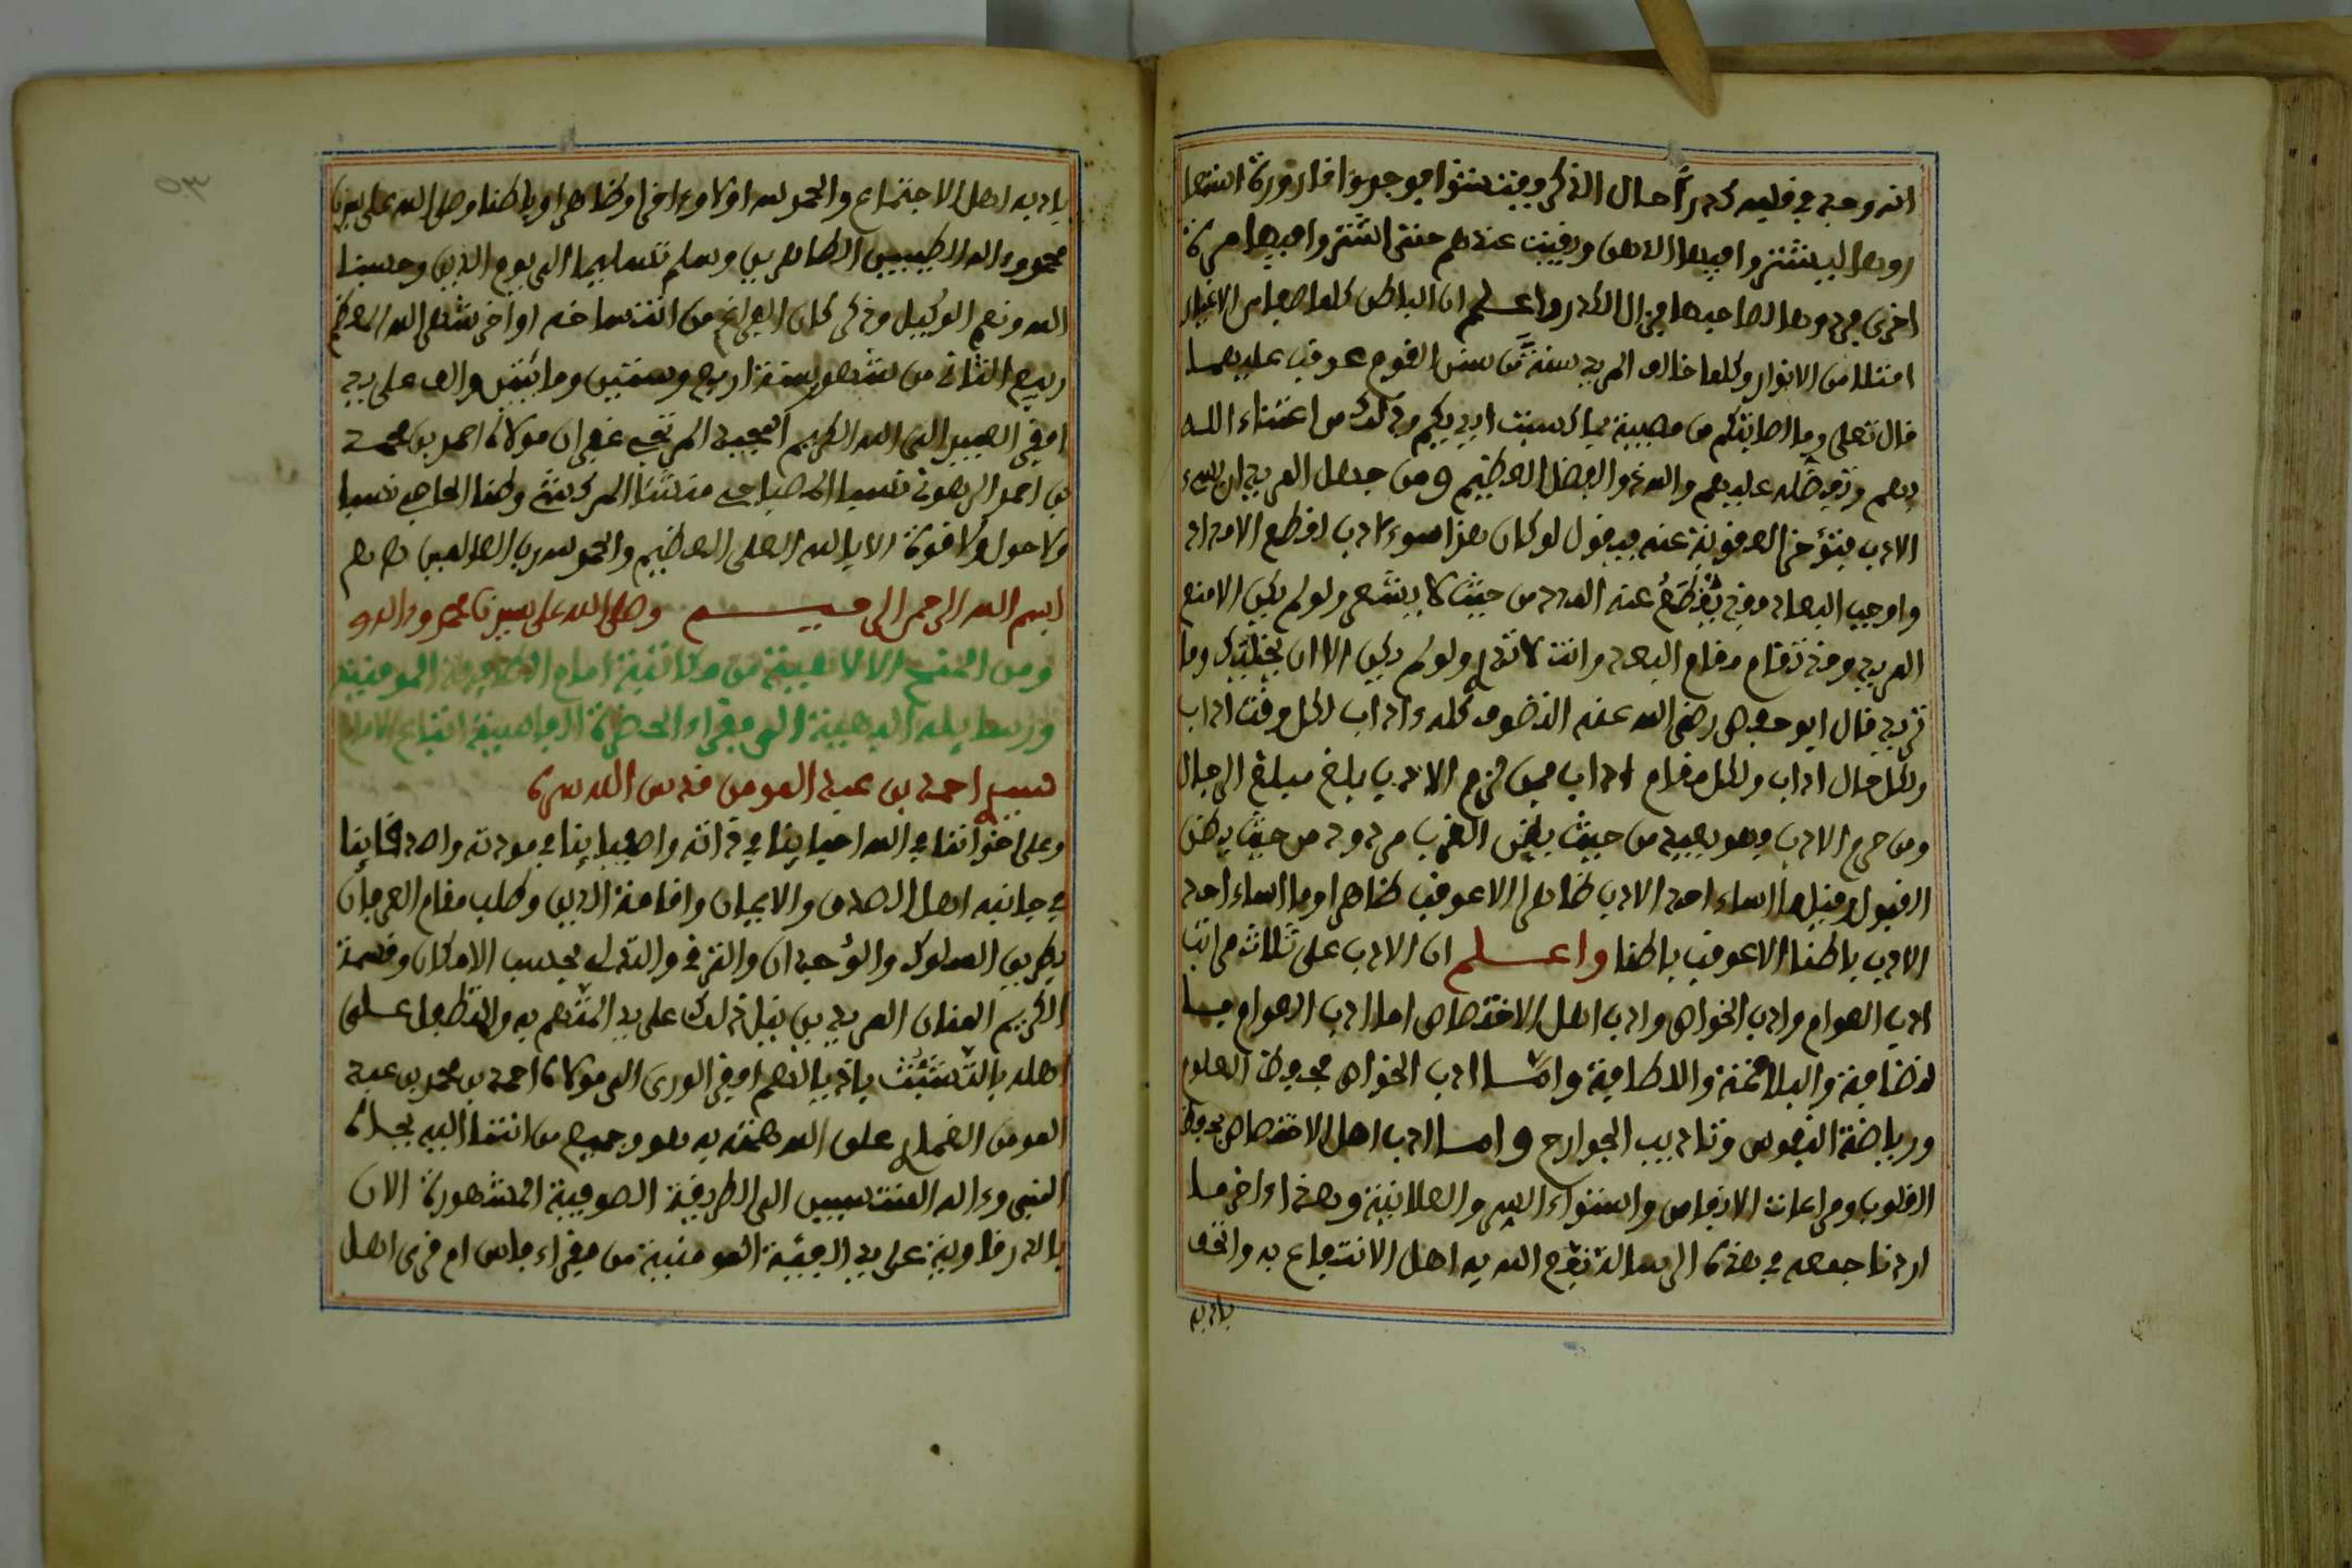 انه وجد في قلبه كدرا حال الذكر فيفتشوا فوجدوا قارورة اشتها
روها ليشتروا فيها الدهن وبقيت عندهم حتى اشتروا فيها مرة
اخرى فردوها لصاحبها فزال الكدر واعلم ان الباطن كلما صفا من الاغيار
امتلا من الانوار وكلما خالف المريد سنة من سنن القوم عوقب عليها
قال تعلى وما اصابتكم من مصيبة بما كسبت ايديكم وذلك من اعتناء الله
بهم وتفضله عليهم والله ذو الفضل العظيم ومن جهل المريد ان يسيء
الادب فتؤخر العقوبة عنه فيقول لو كان هذا سوء ادب لقطع الامداد
واوجب البعاد وقد يقطع عنه المدد من حيث لا يشعر ولو لم يكن الا منع
المريد وقد تقام مقام البعد وانت لا تدري ولو لم يكن الا ان يخليك وما
تريد قال ابو حفص رضي الله عنه التصوف كله ءاداب لكل وقت اداب
ولكل حال اداب ولكل مقام اداب فمن لزم الادب بلغ مبلغ الرجال
ومن حرم الادب فهو بعيد من حيث يظن القرب مردود من حيث يظن
القبول وقيل ما اساء احد الادب ظاهرا الا عوقب ظاهرا وما اساء احد
الادب باطنا الا عوقب باطنا واعلم ان الادب على ثلاث مراتب
ادب العوام وادب الخواص وادب اهل الاختصاص اما ادب العوام فبا
لفصاحة والبلاغة واللطافة واما ادب الخواص فبحفظ العلوم
ورياضة النفوس وتاديب الجوارح واما ادب اهل الاختصاص فبحفظ
القلوب ومراعات الانفاس واستواء السر والعلانية وهذا ءاخر ما
اردنا جمعه في هذه الرسالة نفع الله به اهل الانتفاع به واتحف
باد به
باد به اهل الاجتماع والحمد لله اولا وءاخرا وظاهرا وباطنا وصلى الله على سيدنا
محمد وءاله الطيبين الطاهرين وسلم تسليما الى يوم الدين وحسبنا
الله ونعم الوكيل وذكر كان الفراغ من انتساخه اواخر شهر الله المعظم
ربيع الثاني من شهور سنة اربع وستين ومائتين والف على يد
افقر العبيد الى الله الكريم المجيد المرتجي غفران مولاه احمد بن محمد
بن احمد الرهوني نسبا الاصباحي منشئا المركشي وطنا الحاحي نسبا
ولا حول ولا قوة الا بالله العلى العظيم والحمد لله رب العالمين
بسم الله الرحمن الرحيم وصلى الله على سيدنا محمد وءاله
ومن المنح الالاهية من مكاتبة امام الطريقة المومنية
ورسايله الذهبية الى فقراء الحضرة الفاسية اتباع الامام
سيدي احمد بن عبد المومن قدس الله سره
وعلى اخواننا في الله احبابنا في ذاته واصفيائنا في مودته واصدقائنا
في جانبه اهل الصدق والايمان واقامة الدين وطلب مقام العرفان
بطريق السلوك والوجدان والترقي والتدلي بحسب الامكان وقسمة
الكريم المنان المريدين نيل ذلك على يد المتنعم به والمتطفل على
اهله بالتشبث باذيالهم افقر الورى الى مولاه احمد بن محمد بن عبد
المومن الغماري على الله همته به هو وجميع من انتما اليه بجاه
النبي وءاله المنتسبين الى الطريقة الصوفية المشهورة الان
بالدرقاوية على يد الفئة المومنية من فقراء فاس ام قرى اهل